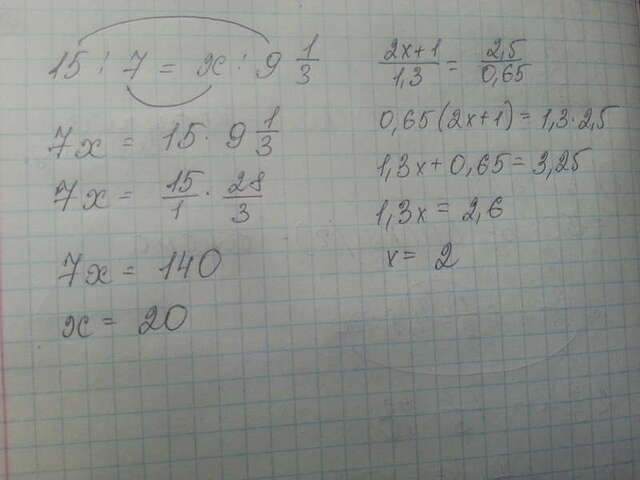 15 : 7 = x : 9 1/3
7x = 15 · 9 1/3
7x = 15/1 · 28/3
7x = 140
x = 20
2x+1/1,3 = 2,5/0,65
0,65(2x+1) = 1,3·2,5
1,3x + 0,65 = 3,25
1,3x = 2,6
x = 2